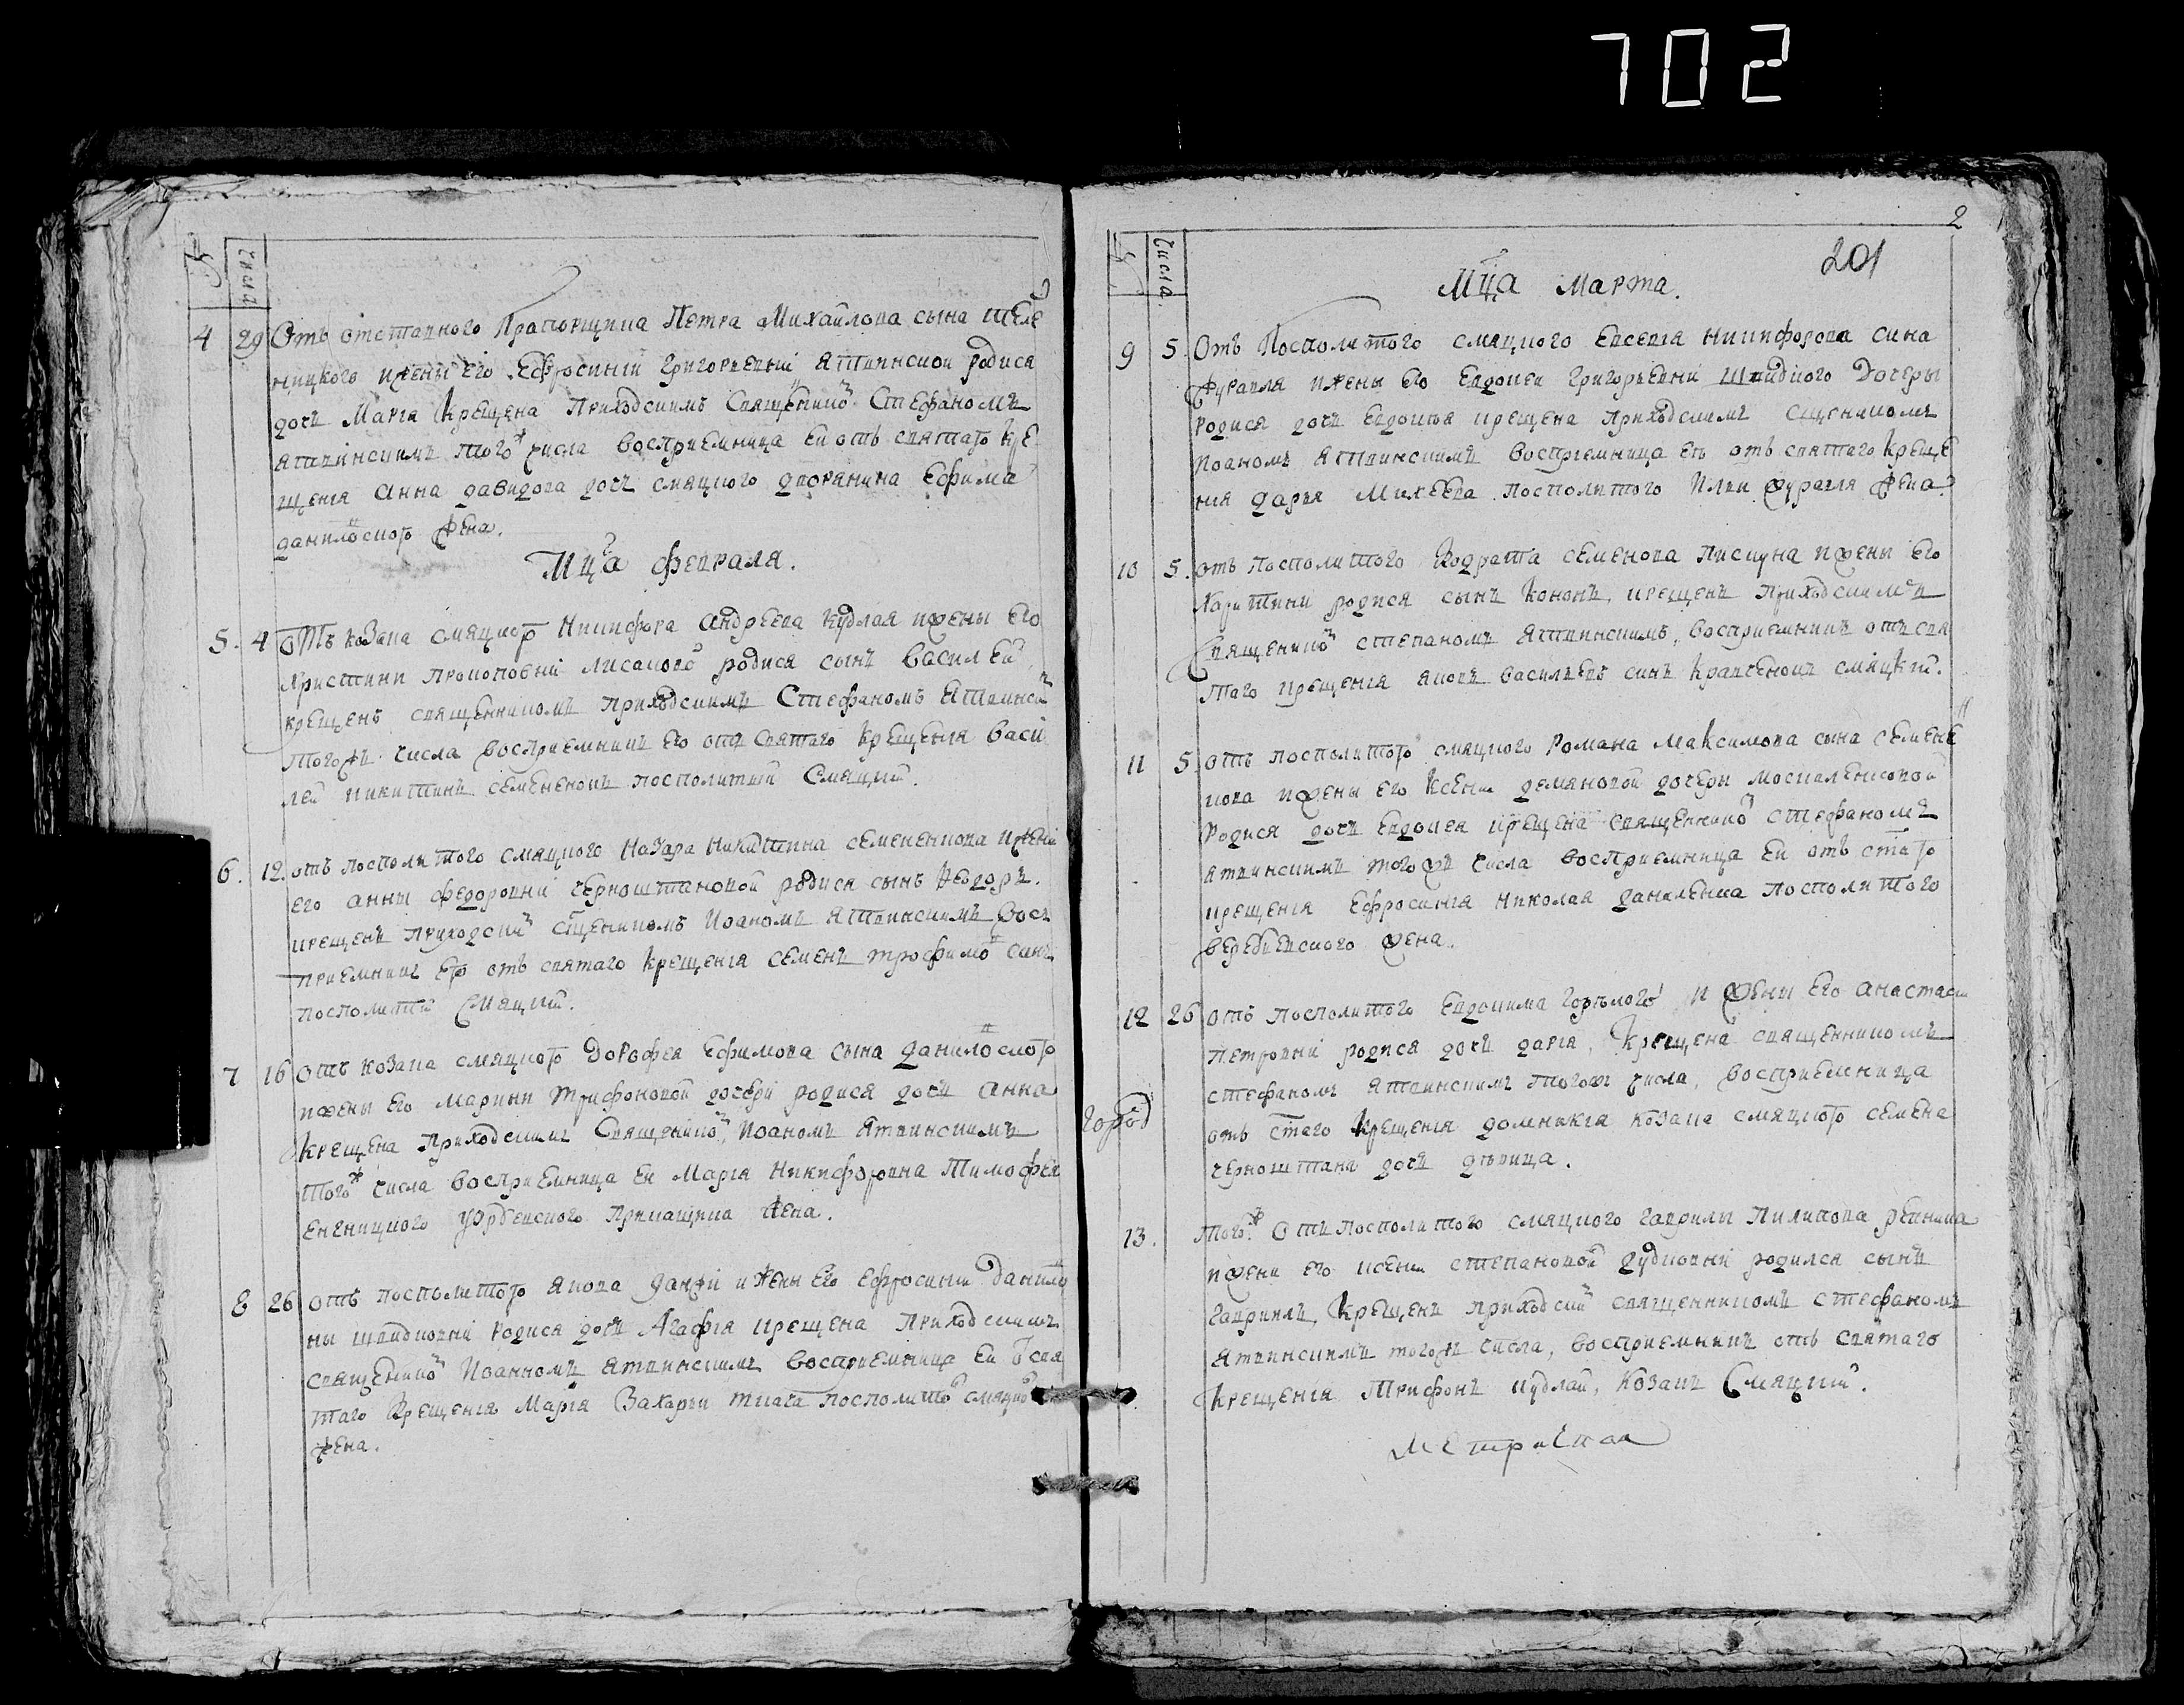 702
№ Числа
4 29 Отъ отставного Прапорщика Петра Михайлова сына
ницкого и жени его Ефросинїи Григорьевнїи Ятвинской родися
дочъ Марїя крещена Приходскимъ Священико Стефаномъ
Ятвинскимъ того ж числа восприемница ей отъ святаго кре
щенїя Анна Давидова дочъ смяцкого дворянина Ефима
данилоского жена.
Мца февраля.
5. 4 отъ козака смяцкого Никифора Андреева кудлая и жены его
Христини Прокоповнї лисаково родися сынъ Василей
крещенъ священникомъ приходскимъ Стефаномъ Ятвински
тогожъ числа восприемникъ его отъ святаго крещенїя Васи
лей никитинъ семененокъ посполитый Смяцкий.
6. 12. отъ посполитого смяцкого Назара Никитина семененкова и жени
его анны федоровни черноштановой родися сынъ Федоръ.
крещенъ приходски сщеникомъ Иоаномъ Ятвинскимъ вос
приемникъ его отъ святаго крещенїя Семенъ трофимо синъ
посполитий Смяцкий.
7 16 отъ козака смяцкого Дорофея Ефимова сына данилоского
и жены его Марини трифоновой дочери родися дочъ Анна
крещена приходскимъ Священико Иоаномъ Ятвинскимъ
того ж числа восприемница ей Марїя Никифоровна Тимофея
жена.
8 26 отъ посполитого якова и жены его ефросинии данило
ны шандиовни родися дочъ Агафїя крещена Приходскимъ
священико Иоанномъ Ятвинскимъ восприемница ей о свя
таго крещенїя Марїя Захарьи ткача посполито смяцко
жена.
2
201
№ Числа.
Мца Марта.
9 5. Отъ Посполитого смяцкого Евсевїя Никифорова сина
журавля и жены его Евдокеи григорьевни Дочеры
родися дочъ Евдокия крещена приходскимъ сщеникомъ
Иоаномъ Ятвинскимъ восприемница ей отъ святаго креще
нїя дарья Михеева посполитого Илии журавля жена.
10 5. отъ посполитого Кодрата семенова Пискуна и жены его
Харитини родися сынъ Кононъ, крещенъ приходскимъ
Священико степаномъ Ятвинскимъ, восприемникъ отъ свя
таго крещенїя яковъ васильевъ синъ кравченокъ смяцкий.
11 5 отъ посполитого смяцкого Романа Максимова сына семене
кова и жены его Ксении демяновой дочери москаленковой
родися дочъ Евдокея крещена священнико стефаномъ
ятвинскимъ того жъ числа восприемница ей отъ стаго
крещенїя Ефросинїя николая даниленка посполитого
жена.
12 26 отъ посполитого Евдокима горѣлого и жены его анастаси
петровнї родися дочъ дарїя, крещена священникомъ
стефаномъ ятвинскимъ тогожъ числа, восприемница
отъ стаго крещенїя домникїя козака смяцкого семена
черноштана дочъ дѣвица.
13. Того ж отъ посполитого смяцкого гаврилы Пилипова репника
и жени его ксении степановой гудковни родился сынъ
гавриилъ, крещенъ приходски священникомъ стефаномъ
ятвинскимъ тогожъ числа, восприемникъ отъ святаго
крещенїя Трифонъ кудлай, козакъ Смяцкий.